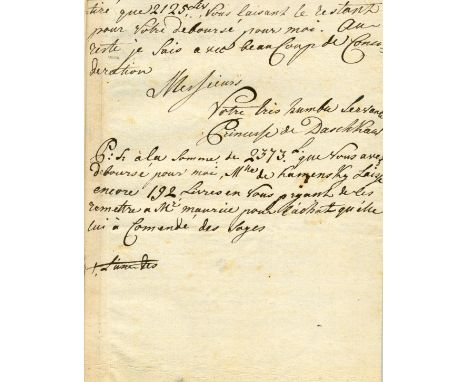 tiré que 2125 Vous laisant le restant
pour Votre deboursé pour moi. Au
reste je Suis avec beaucoup de Consi
deration
Messieurs
Votre tris humble Servant
Princesse de Daschkaw
P: S: à la Somme de 2373 que Vous avez
debourse pour moi, M de Kamensky Laisse
encore 192 Livres en Vous priant de les
remettre a Mr maurice pour l'achat qu'elle
lui à Comandé des